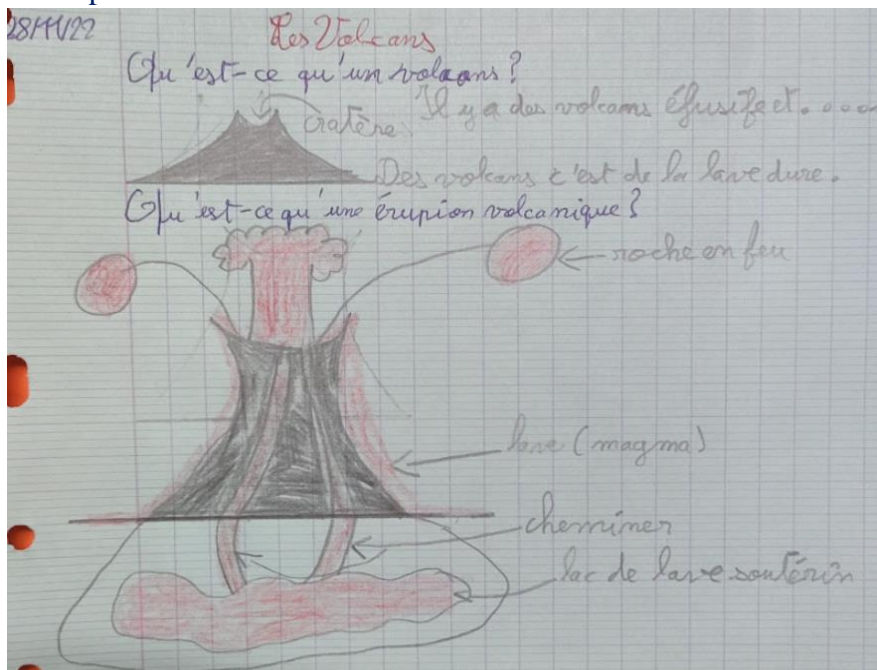 28/11/22
Les Volcans
Qu'est-ce qu'un volcans ?
cratère
Il y a des volcans éfusifect.....
Des volcans c'est de la lave dure.
Qu'est-ce qu'une érupion volcanique ?
roche en feu
lave (magma)
cheminer
lac de lave soutérin